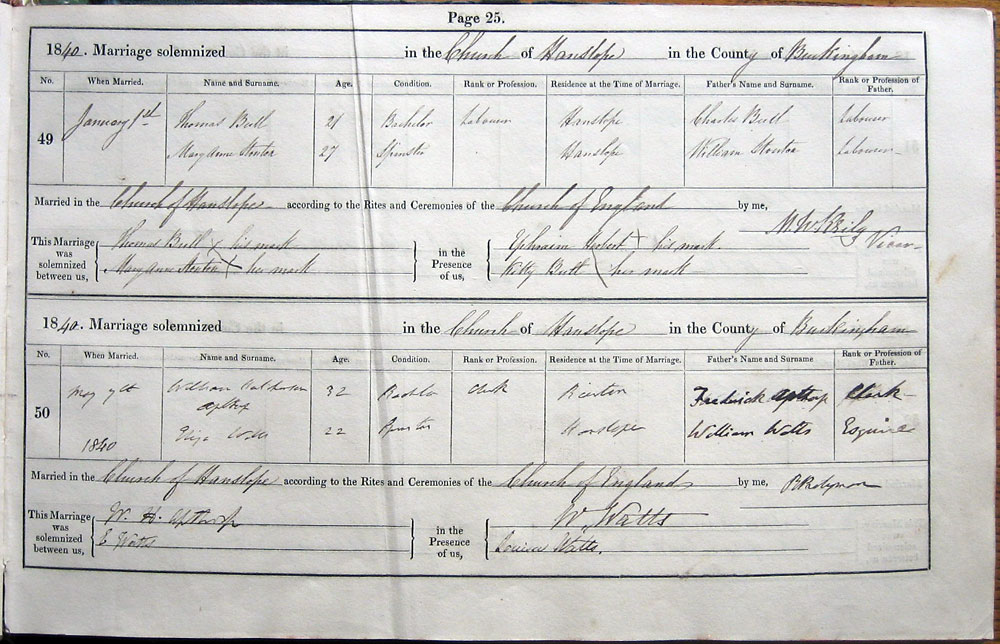 Page 25.
1840. Marriage solemnized in the Church of Hanslope in the County of Buckingham
No. When Married. Name and Surname. Age. Condition. Rank or Profession. Residence at the Time of Marriage. Father's Name and Surname. Rank or Profession of Father.
49 January 1st Thomas Bull 21 Bachelor Labourer Hanslope Charles Bull Labourer
Mary Anne 27 Spinster Hanslope William Labourer
Married in the Church of Hanslope according to the Rites and Ceremonies of the Church of England by me,
Vicar
This Marriage was solemnized between us, Thomas Bull X his mark in the Presence of us, Ephraim Herbert + his mark.
Mary Anne X her mark Kitty Bull her mark
1840. Marriage solemnized in the Church of Hanslope in the County of Buckingham
No. When Married. Name and Surname. Age. Condition. Rank or Profession. Residence at the Time of Marriage. Father's Name and Surname Rank or Profession of Father.
50 May 7th William 32 Clerk Bierton Frederick Apthorp Clerk
Apthorp
1840 Eliza Watts 22 Spinster Hanslope William Watts Esquire
Married in the Church of Hanslope according to the Rites and Ceremonies of the Church of England by me,
This Marriage was solemnized between us, W. H. Apthorp in the Presence of us, W. Watts
E Watts Louisa Watts.